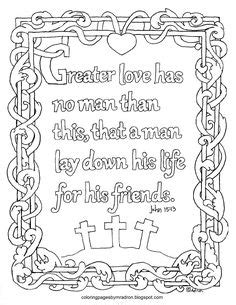 Greater love has
no man than
this, that a man
lay down his life
for his friends.
John 15:13
coloringpagesbymradron.blogspot.com